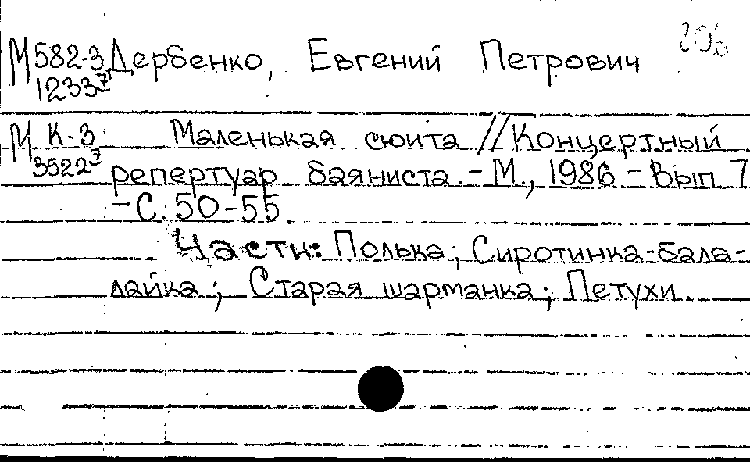 М582-3 Дербенко, Евгений Петрович
1233
М К-3 Маленькая сюита // Концертный
3522
репертуар баяниста. - М., 1986 - Вып. 7
- С. 50-55.
Части: Полька; Сиротинка-бала-
лайка; Старая шарманка; Петухи.